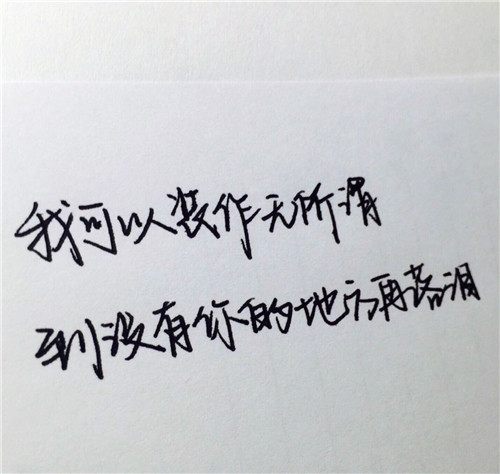 我可以装作无所谓
到没有你的地方再落泪